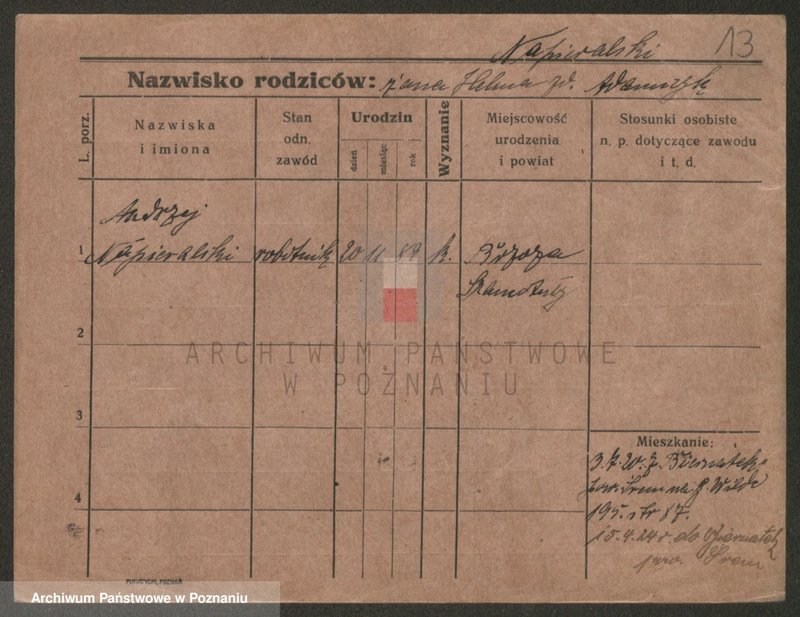 Napieralski 13
Nazwisko rodziców: żona Helena zd. Adamczyk
L. porz.
Nazwiska i imiona
Stan odn. zawód
Urodzin
dzień
miesiąc
rok
Wyznanie
Miejscowość urodzenia i powiat
Stosunki osobiste n. p. dotyczące zawodu i t. d.
Andrzej
1 Napieralski robotnik 20 11 89 k. Brzoza
Szamotuły
2
ARCHIWUM PAŃSTWOWE
W POZNANIU
3
Mieszkanie:
3.7.20. z Biernatek
pow. Śrem na g. Wilde
4
195. str 87.
15.4.24 r. do Biernatek
pow. Śrem
PUTIATYCKI, POZNAŃ
Archiwum Państwowe w Poznaniu